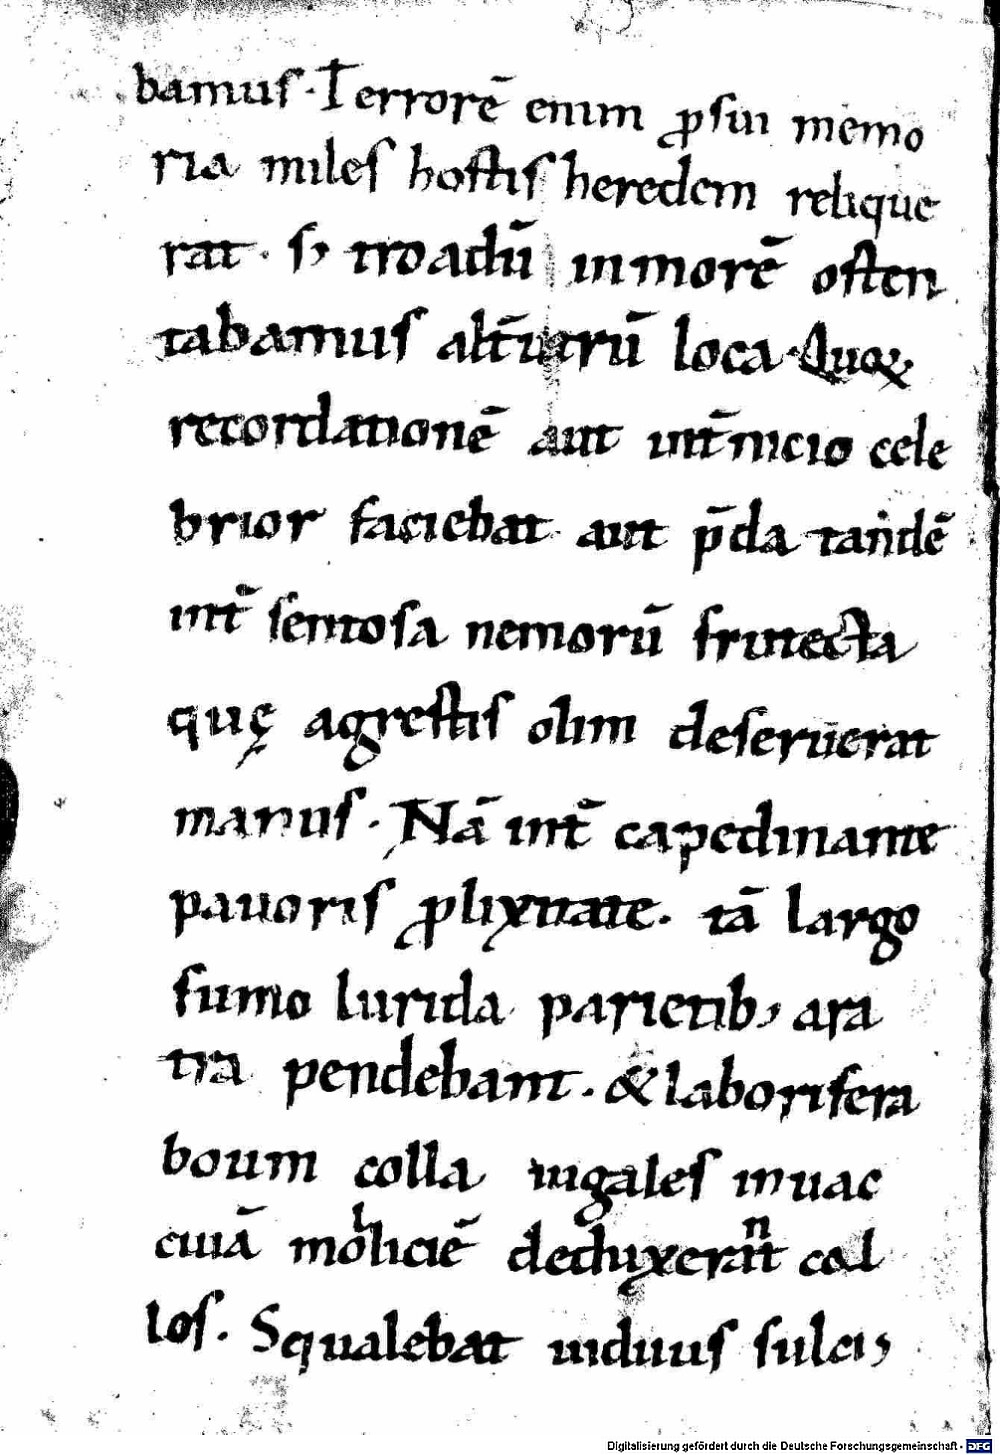 bamus. Terrorē enim ꝑsui memo
ria miles hostis heredem relique
rat. sʒ troadū inmorē osten
tabamus alt̄utrū loca. Quoꝝ
recordationē aut int̄nicio cele
brior faciebat aut p̄da tandē
int̄ sentosa nemorū frutecta
quę agrestis olim deseruerat
manus. Nā int̄ capedinante
pauoris ꝓlixitate. tā largo
fumo lurida parietibꝫ ara
tra pendebant. & laborifera
boum colla iugales inuac
ciuā moliciē deduxerant cal
los. Squalebat uiduus sulcis